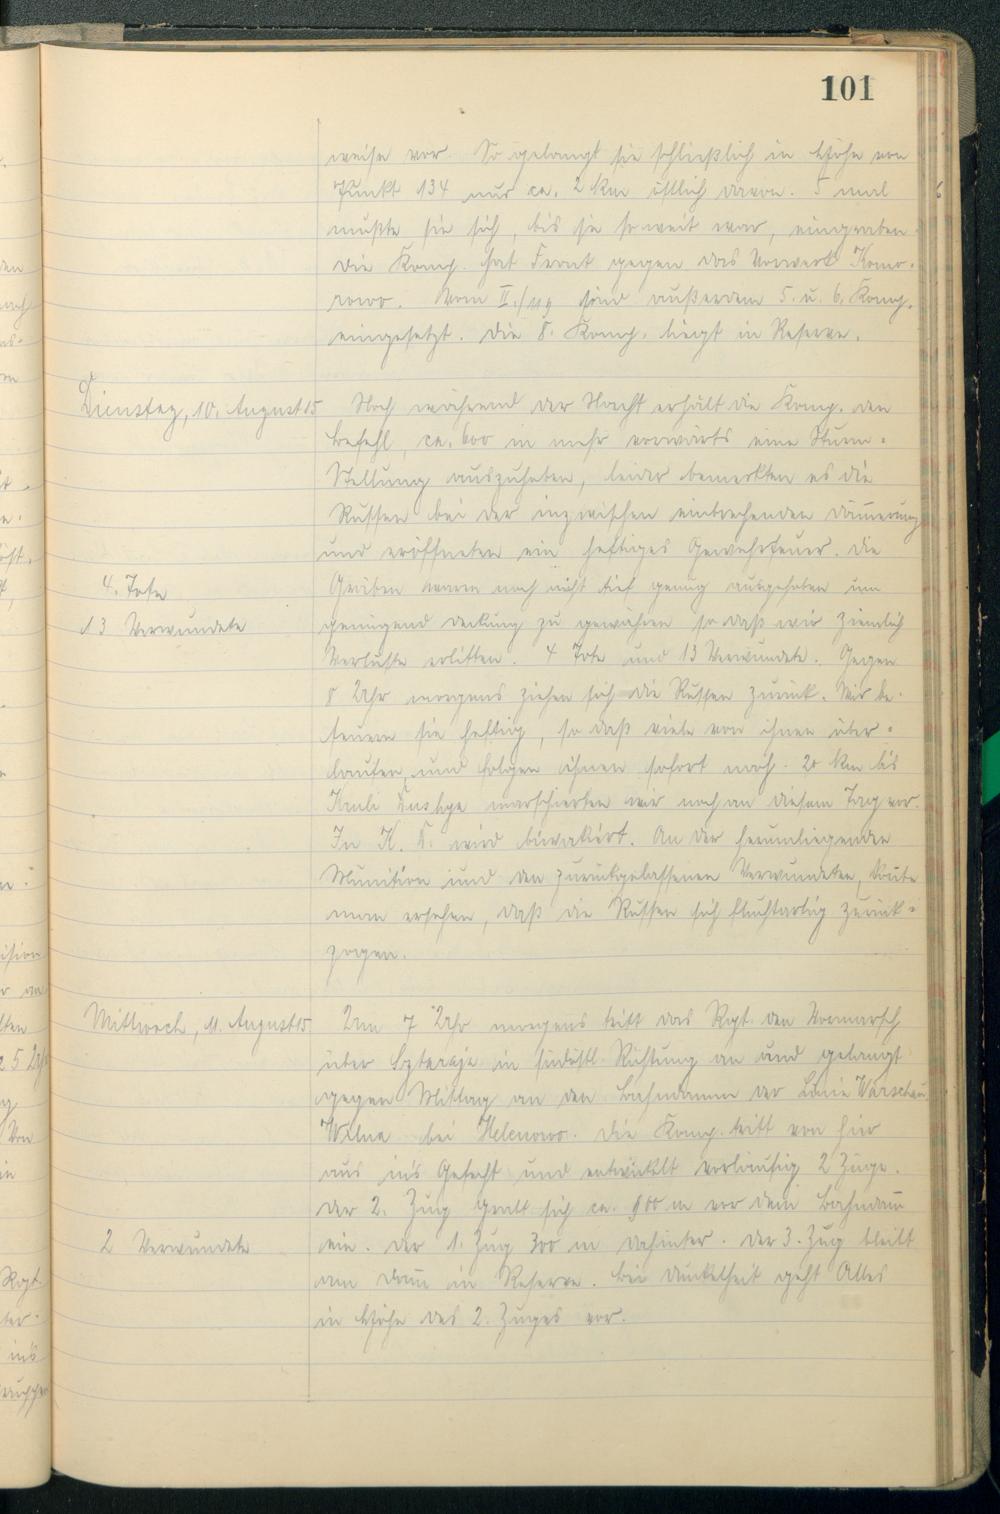 101
weise vor. So gelangt sie schließlich in Höhe von
Punkt 134 nur ca. 2 km östlich davon. 5 mal
mußte sie sich, bis sie so weit war, eingraben
Die Komp. hat Front gegen das Vorwerk Komo-
rowo. Vom II./119 sind außerdem 5. u. 6. Komp.
eingesetzt. Die 8. Komp. liegt in Reserve.
Dienstag, 10. August 15
Noch während der Nacht erhält die Komp. den
Befehl, ca. 600 m mehr vorwärts eine Sturm-
Stellung auszuheben, leider bemerkten es die
Russen bei der inzwischen einbrechenden Dämerung
und eröffneten ein heftiges Gewehrfeuer. Die
4. Tote
Gräben waren noch nicht tief genug ausgehoben um
13 Verwundete
genügend Deckung zu gewähren so daß wir ziemlich
Verluste erlitten. 4 Tote und 13 Verwundete. Gegen
8 Uhr morgens ziehen sich die Russen zurück. Wir be-
feuern sie heftig, so daß viele von ihnen über-
laufen, und folgen ihnen sofort nach. 20 km bis
marschierten wir noch an diesem Tag vor.
In K. wird biwakiert. An der herumliegenden
Munition und den zurückgelassenen Verwundeten, konnte
man ersehen, daß die Russen sich fluchtartig zurück-
zogen.
Mittwoch, 11. August 15
Um 7 Uhr morgens tritt das Rgt. den Vormarsch
über in südöstl. Richtung an und gelangt
gegen Mittag an den Bahndamm der Linie Warschau
Wilna bei Helenowo. Die Komp. tritt von hier
aus ins Gefecht und entwickelt vorläufig 2 Züge.
Der 2. Zug gräbt sich ca. 800 m vor dem Bahndam
2 Verwundete
ein. Der 1. Zug 300 m dahinter. Der 3. Zug bleibt
am Dam in Reserve. Bei Dunkelheit geht Alles
in Höhe des 2. Zuges vor.